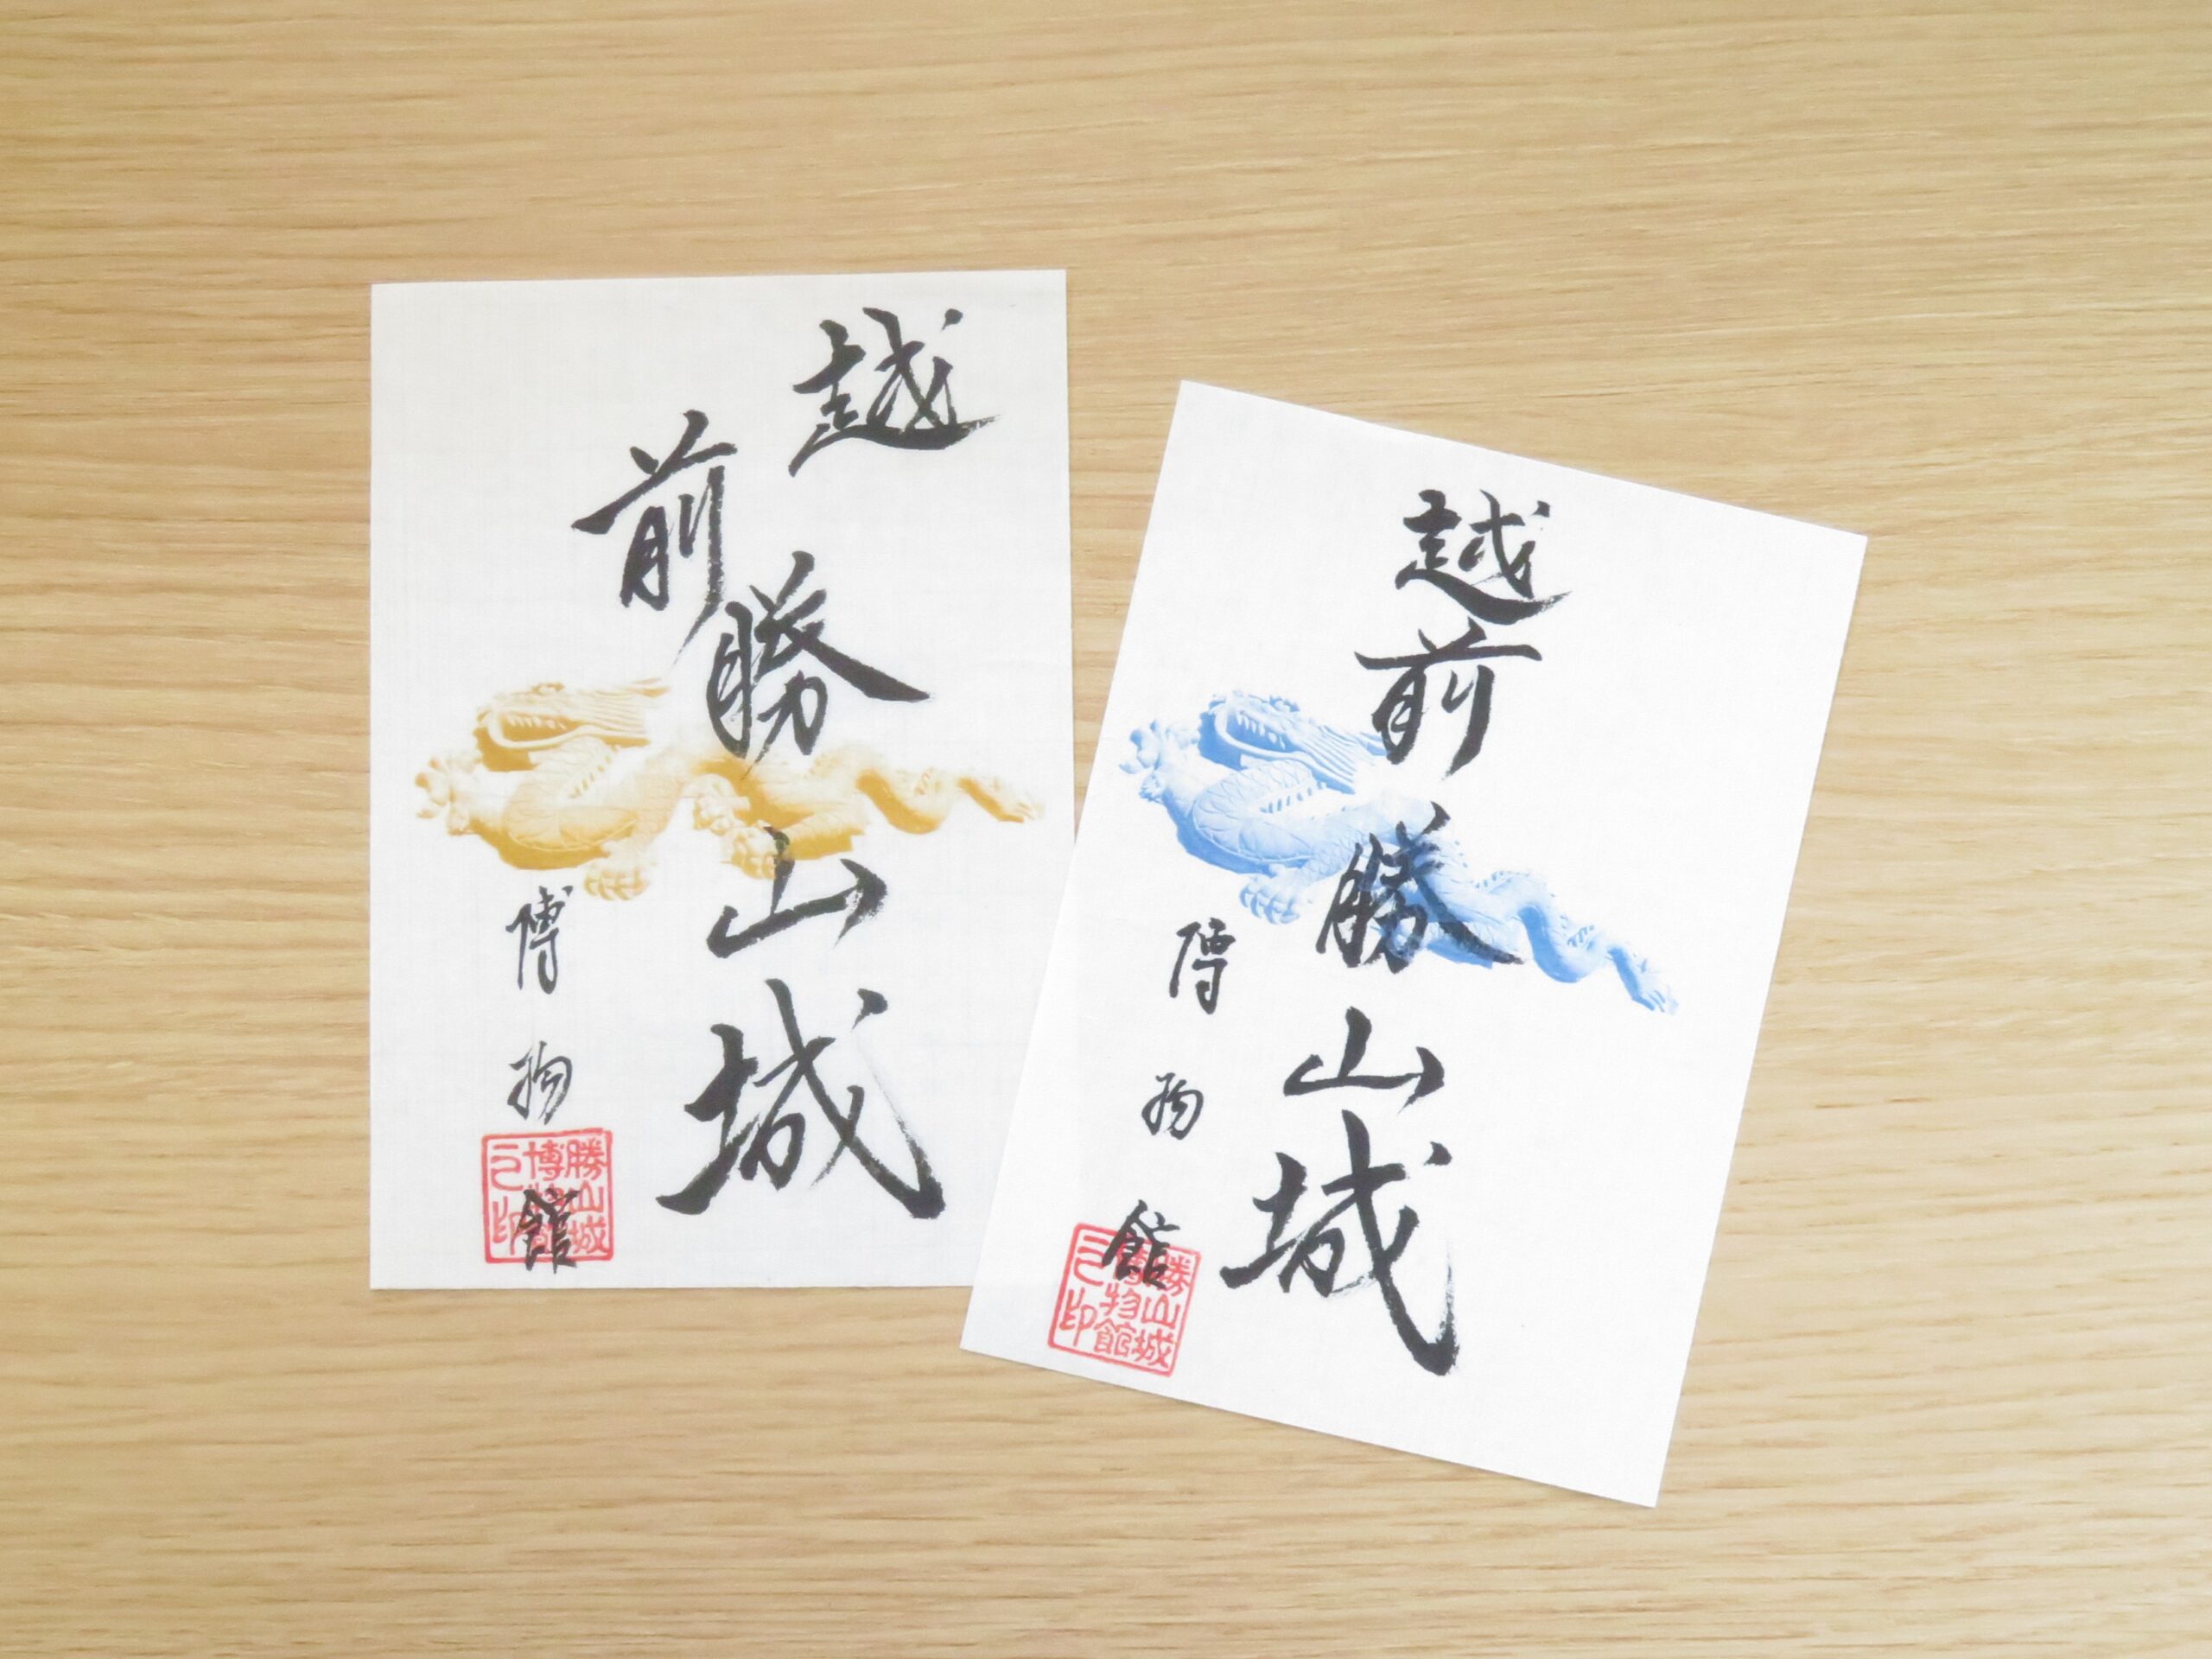 越前勝山城
博物館
勝山城
博物館
之印
越前勝山城
博物館
勝山城
博物館
之印